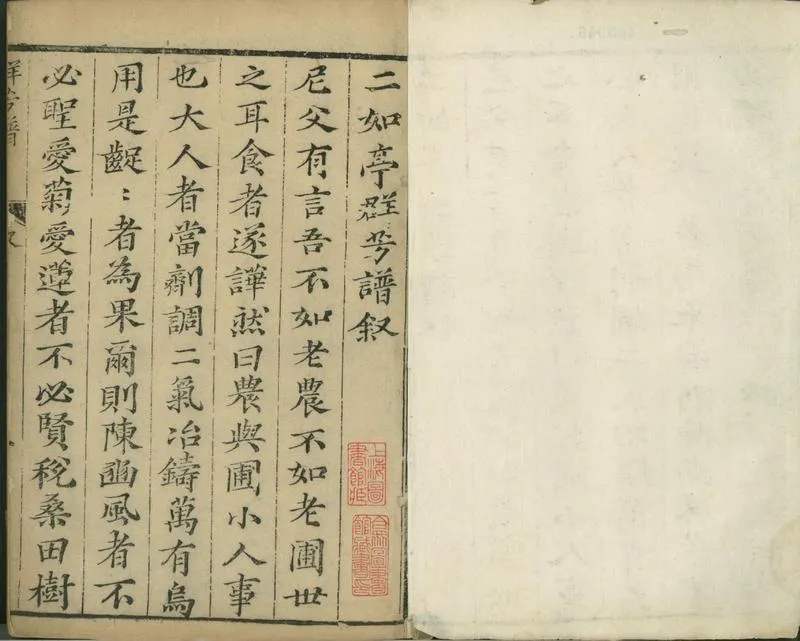 二如亭群芳譜叙
尼父有言吾不如老農不如老圃世
之耳食者遂譁然曰農與圃小人事
也大人者當劑調二氣冶鑄萬有烏
用是齪：者為果爾則陳豳風者不
必聖愛菊愛蓮者不必賢稅桑田樹
群芳譜
叙
上海圖
書館藏